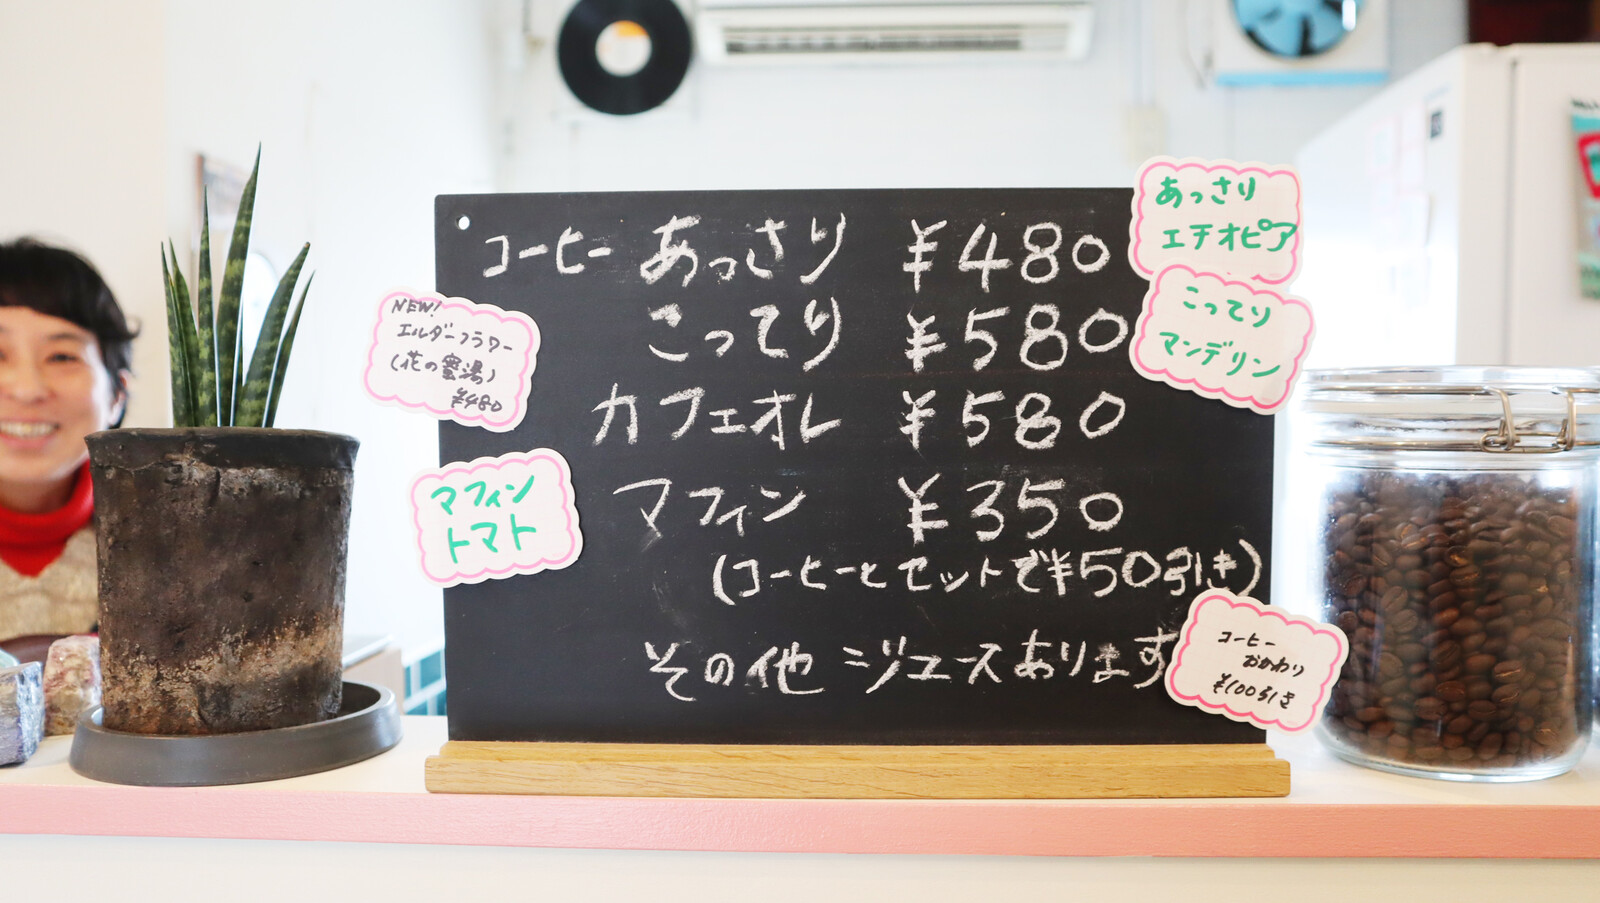 コーヒー あっさり ¥480
こってり ¥580
カフェオレ ¥580
マフィン ¥350
(コーヒーとセットで¥50引き)
その他 ジュースあります
あっさり
エチオピア
こってり
マンデリン
NEW!
エルダーフラワー
(花の蜜湯)
¥480
マフィン
トマト
コーヒー
おかわり
¥100引き